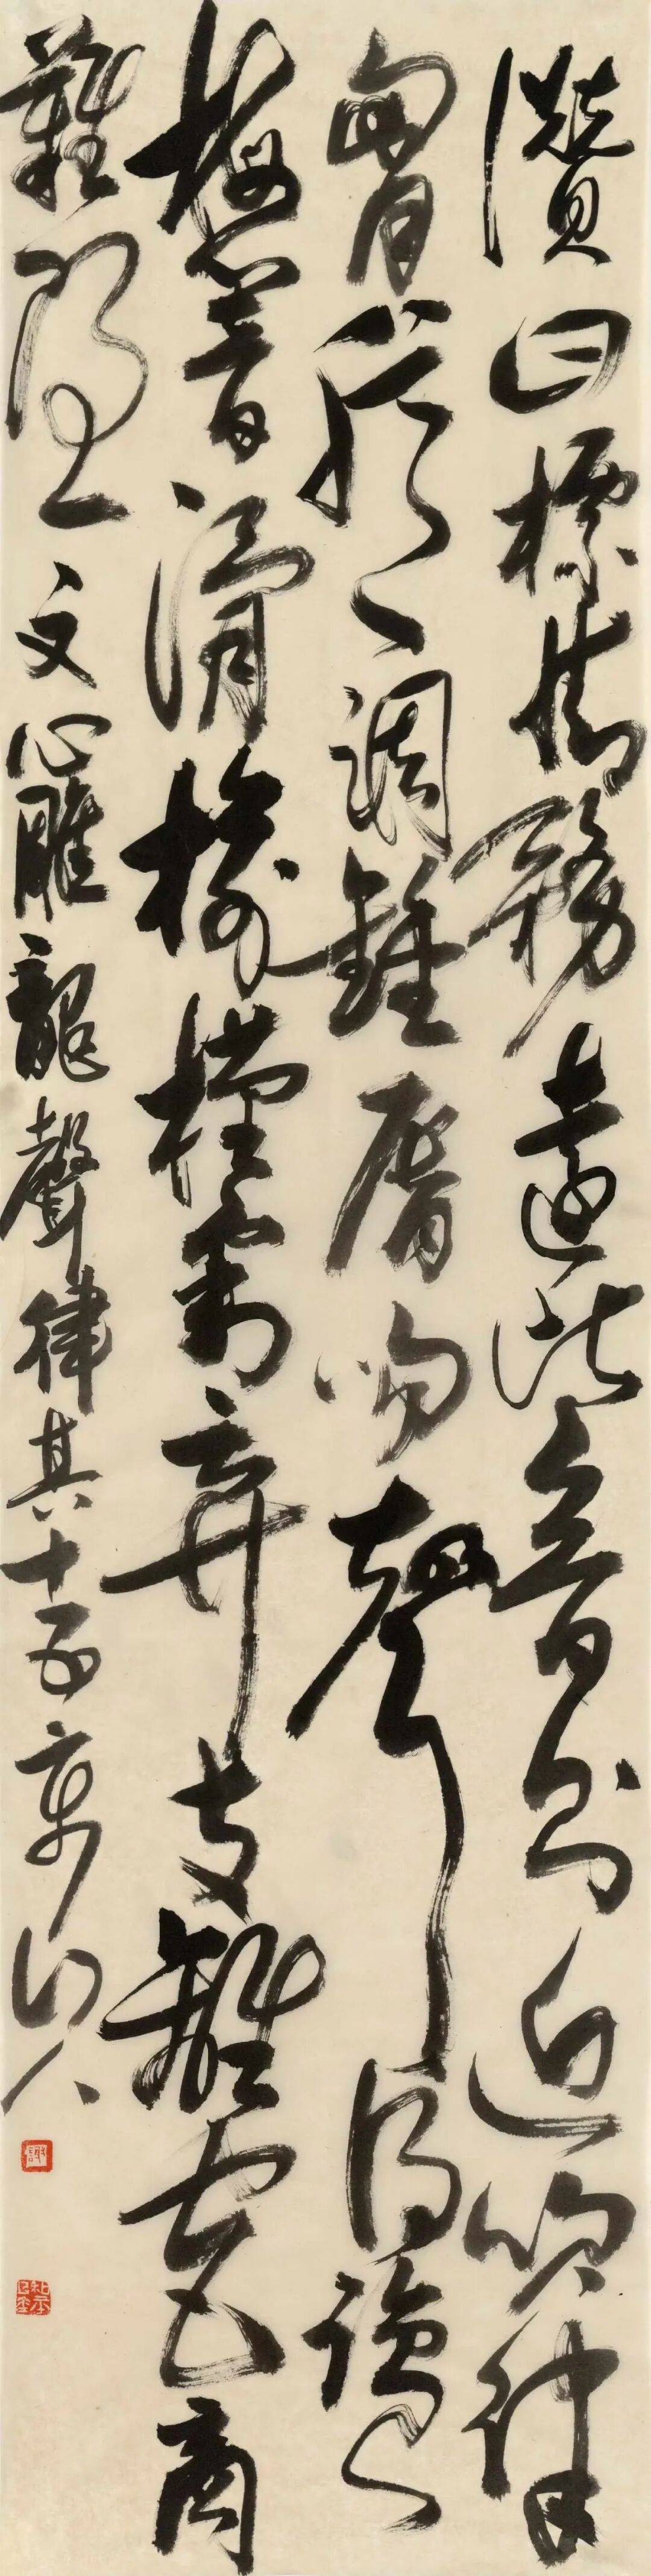 讚曰標情務遠比音則近吹律
胷臆調鍾脣吻聲得鹽
梅響滑榆槿割棄支離宮商
難隱 文心雕龍聲律其十 人